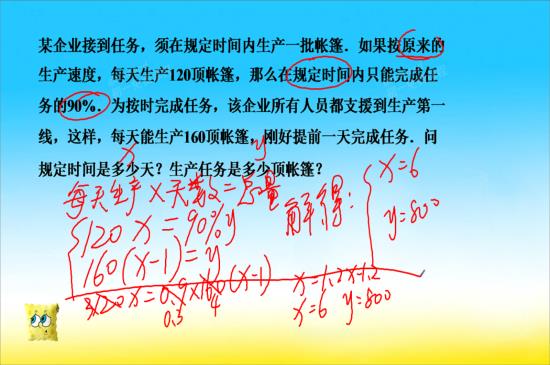 某企业接到任务，须在规定时间内生产一批帐篷．如果按原来的
生产速度，每天生产120顶帐篷，那么在规定时间内只能完成任
务的90%．为按时完成任务，该企业所有人员都支援到生产第一
线，这样，每天能生产160顶帐篷，刚好提前一天完成任务．问
规定时间是多少天？生产任务是多少顶帐篷？
x y
每天生产×天数=总量
120x=90%y
160(x-1)=y
解得：
x=6
y=800
120x=0.9×160(x-1)
0.3 4
x=1.2x-1.2
x=6 y=800